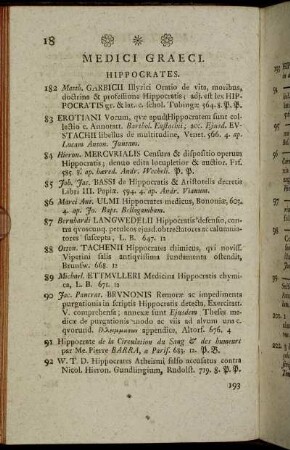 18
MEDICI GRAECI.
HIPPOCRATES.
182 Matth. GARBICII Illyrici Oratio de vita, moribus,
doctrina & professione Hippocratis; adj. est lex HIP-
POCRATIS gr. & lat. c. schol. Tubingæ 564. 8. P. P.
83 EROTIANI Vocum, quæ apud Hippocratem sunt col-
lectio c. Annotat. Barthol. Eustachii; acc. Ejusd. EU-
STACHII libellus de multitudine, Venet. 566. 4. ap.
Lucam Anton. Juntam.
84 Hieron. MERCURIALIS Censura & dispositio operum
Hippocratis; denuo edita locupletior & auctior. Frf.
585. 8. ap. hæred. Andr. Wecheli. P. P.
85 Job. Jac. BASSI de Hippocratis & Aristotelis decretis
Libri III. Popiæ. 594. 4. ap. Andr. Vianum.
86 Marci Ant. ULMI Hippocrates medicus, Bononiæ, 603.
4. ap. Jo. Bapt. Bellagambam.
87 Bernhardi LANGWEDELII Hippocratis defensio, con-
tra quoscunq. petulcos ejusd. obtrectatores ac calumnia-
tores suscepta, L. B. 647. 12
88 Otton. TACHENII Hippocrates chimicus, qui noviss.
Viperini salis antiquissima fundamenta ostendit,
Brunsw. 668. 12
89 Michael. ETTMULLERI Medicina Hippocratis chymi-
ca, L. B. 671. 12
90 Jac. Pancrat. BRUNONIS Remoræ ac impedimenta
purgationis in scriptis Hippocratis detecta, Exercitatt.
V. comprehensa; annexæ sunt Ejusdem Theses medi-
cæ de purgationis modo ac viis ad alvum una c.
appendice, Altorf. 676. 4
91 Hippocrate de la Circulation du Sang & des humeurs
par Me. Pierre BARRA, a Paris. 683. 12. P. B.
92 W. T. D. Hippocrates Atheismi falso accusatus contra
Nicol. Hieron. Gundlingium, Rudolst. 719. 8. P. P.
193